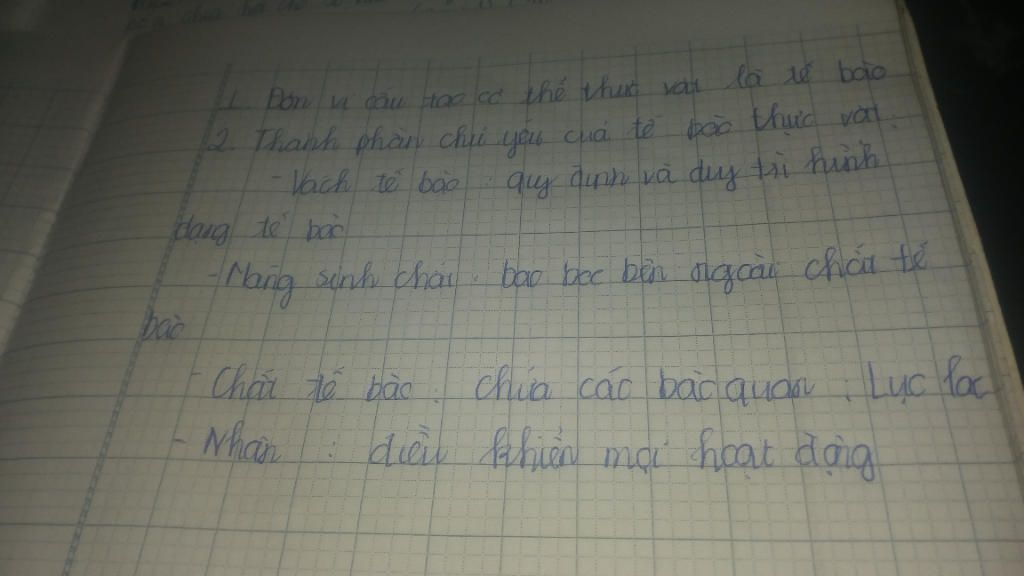 1. Đơn vị cấu tạo cơ thể thực vật là tế bào
2. Thành phần chủ yếu của tế bào thực vật.
- Vách tế bào : quy định và duy trì hình
dạng tế bào
- Màng sinh chất : bao bọc bên ngoài chất tế
bào
- Chất tế bào : chứa các bào quan : Lục lạc
- Nhân : điều khiển mọi hoạt động